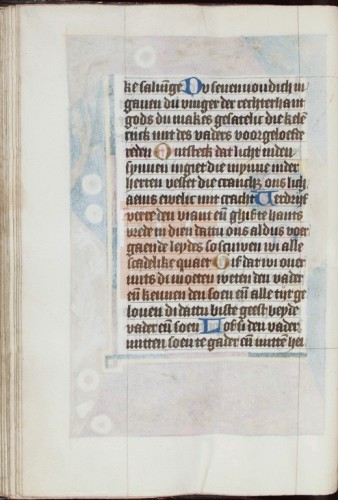 ke saluinge Du seuenuoudich in
gauen du vinger der rechterhant
gods du makes gesaticht die kelē
rijck mit des vaders voorgeloefte
reden Ontsteeck dat licht inden
synnen ingiet die mynne inder
herten vestet die cranch⁊ ons lich
aems ewelic mit cracht Verdrijf
verre den viant eñ ghifte hants
vrede in dien dattu ons aldus voer
gaende leydes so scuwen wi alle
scadelike quaet Gif dat wi ouer
mits di moeten weten den vader
eñ kennen den soen eñ alle tijt ge
louen di dattu biste geest beyde
vader eñ soen Lof si den vader
mitten soen te gader eñ mittē hei